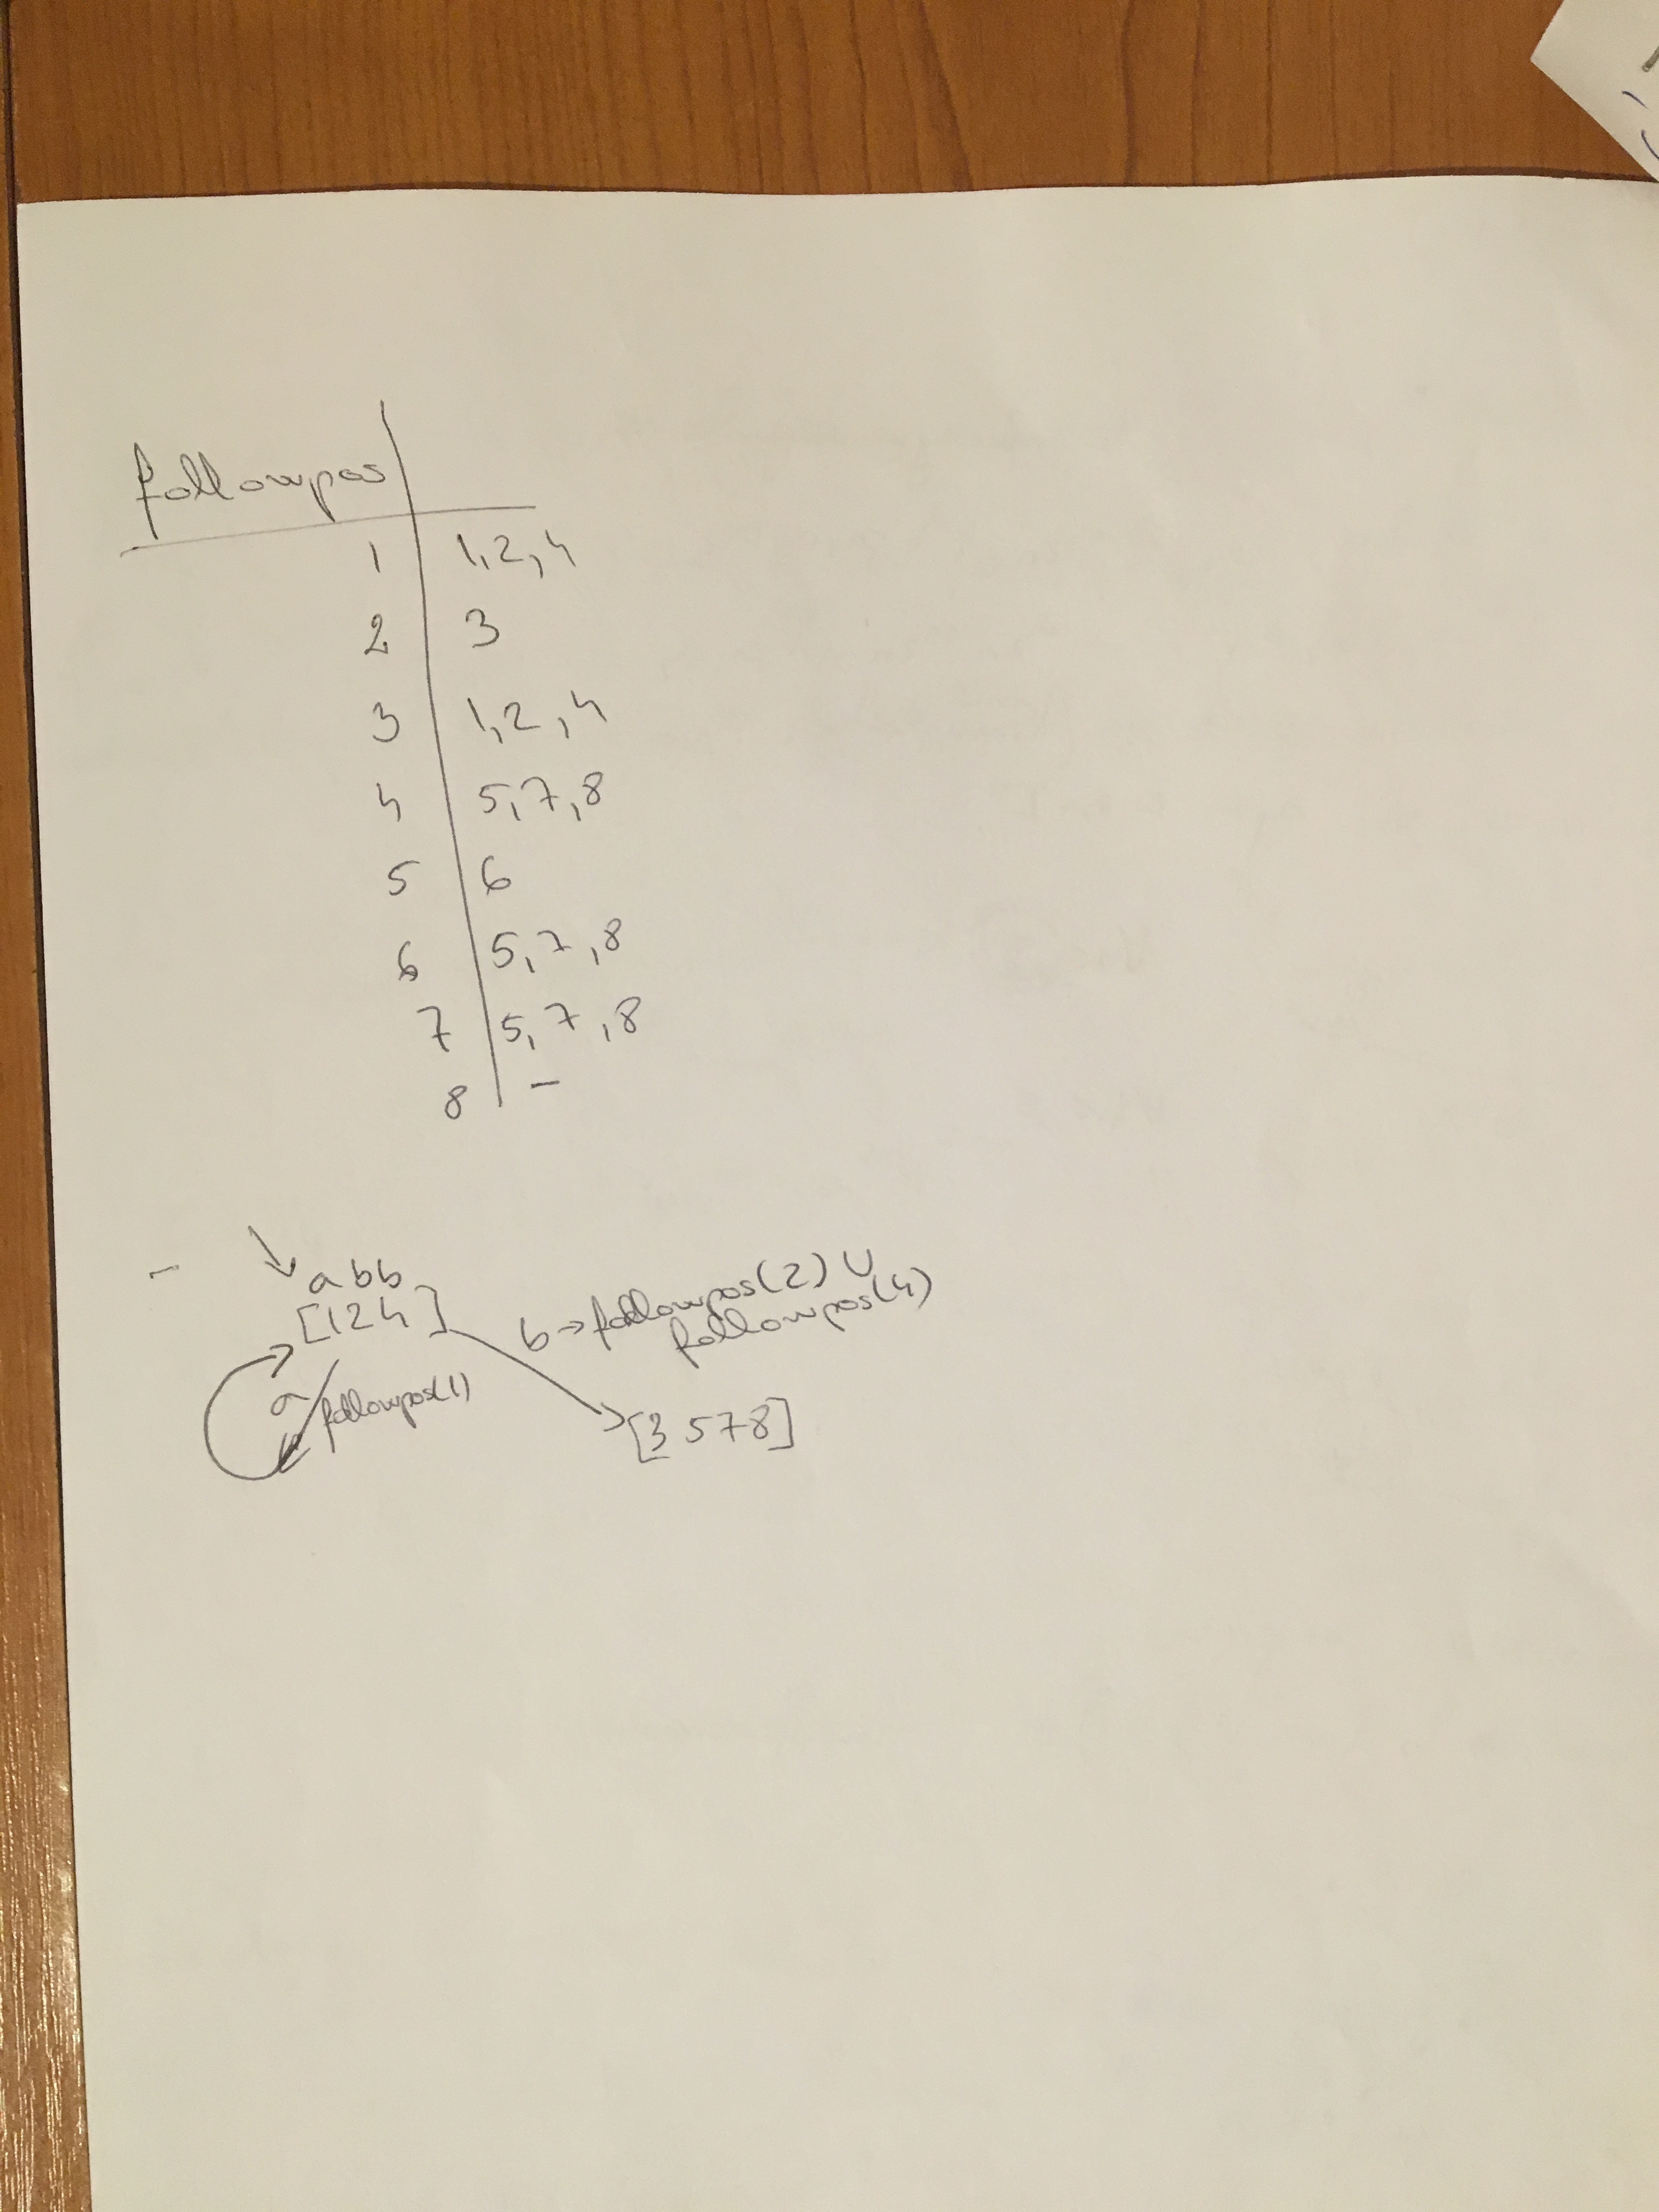 followpos
1 1,2,4
2 3
3 1,2,4
4 5,7,8
5 6
6 5,7,8
7 5,7,8
8 -
- abb
[124]
b→followpos(2) ∪
followpos(4)
a followpos(1)
[3 578]